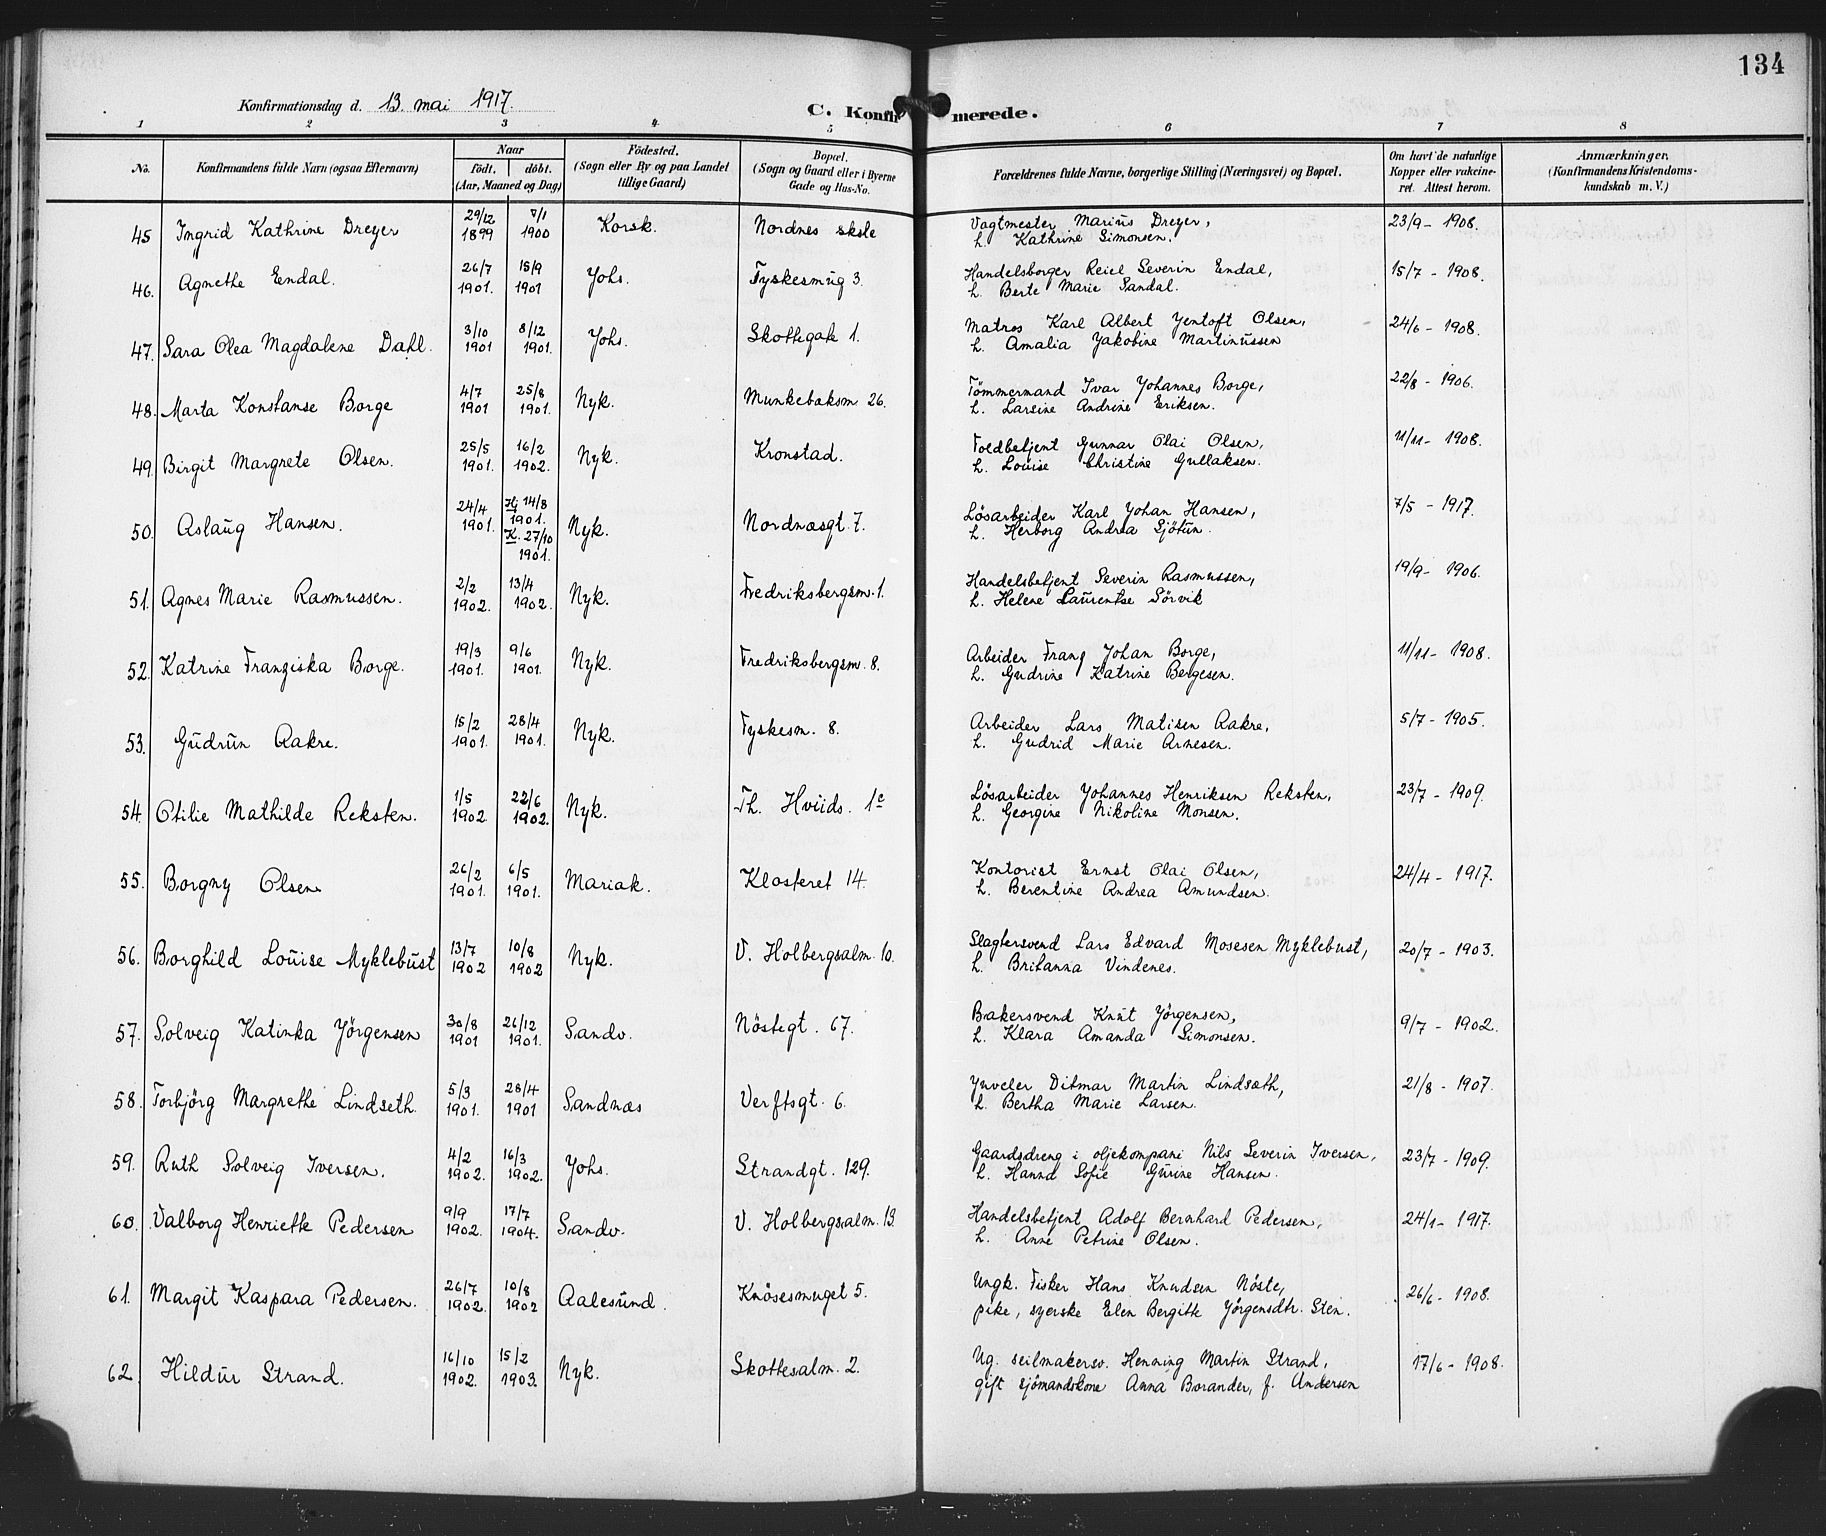 134
Konfirmationsdag d. 13. mai 1917.
C. Konfirmerede.
1 2 3 4 5 6 7 8
No. Konfirmandens fulde Navn (ogsaa Efternavn) Naar født. døbt. (Aar, Maaned og Dag) Fødested. (Sogn eller By og paa Landet tillige Gaard) Bopæl. (Sogn og Gaard eller i Byerne Gade og Hus-No. Forældrenes fulde Navne, borgerlige Stilling (Næringsvei) og Bopæl. Om havt de naturlige Kopper eller vakcineret. Attest herom. Anmærkninger. (Konfirmandens Kristendomskundskab m. V.)
45 Ingrid Kathrine Dreyer 29/12 1899 7/1 1900 Korsk. Nordnes skole Vagtmester Marius Dreyer, 23/9 - 1908.
h. Kathrine Simonsen.
46. Agnethe Emdal. 26/7 1901. 15/9 1901 Johs. Tyskesmug 3. Handelsborger Reiel Severin Emdal, 15/7 - 1908.
h. Berte Marie Sandal.
47. Sara Olea Magdalene Dahl. 3/10 1901 8/12 1901. Johs. Skottegate 1. Matros Karl Albert Jentoft Olsen, 24/6 - 1908.
h. Amalia Jakobine Martinussen
48. Marta Konstanse Borge 4/7 1901 25/8 1901. Nyk. Munkebaksm 26. Tömmermand Ivar Johannes Borge, 22/8 - 1906.
h. Larsine Andrine Eriksen.
49. Birgit Margrete Olsen. 25/5 1901. 16/2 1902. Nyk. Kronstad. Toldbetjent Gunnar Olai Olsen, 11/11 - 1908.
h. Louise Christine Gullaksen.
50. Aslaug Hansen. 24/4 1901. Hj 14/8 1901. K. 27/10 1901. Nyk. Nordnæsgt. 7. Lösarbeider Karl Johan Hansen, 7/5 - 1917.
h. Herborg Andrea Sjötun.
51. Agnes Marie Rasmussen. 2/2 1902. 13/4 1902. Nyk. Fredriksbergsm. 1. Handelsbetjent Severin Rasmussen, 19/9 - 1906.
h. Helene Laurentse Sörvik
52. Katrine Franziska Borge. 19/3 1901. 9/6 1901. Nyk. Fredriksbergsm. 8. Arbeider Franz Johan Borge, 11/11 - 1908.
h. Gudrine Katrine Bergesen.
53. Gudrun Aakre. 15/2 1901. 28/4 1901. Nyk. Tyskesm. 8. Arbeider Lars Matisen Aakre, 5/7 - 1905.
h. Gudrid Marie Arnesen.
54 Otilie Mathilde Reksten. 1/5 1902 22/6 1902. Nyk. Th. Hviids. 1c Lösarbeider Johannes Henriksen Reksten, 23/7 - 1909.
h. Georgine Nikoline Monsen.
55. Borgny Olsen 26/2 1901. 6/5 1901. Mariak. Klosteret 14. Kontorist Ernst Olai Olsen, 24/4 - 1917.
h. Berentine Andrea Amundsen.
56. Borghild Louise Myklebust 13/7 1902 10/8 1902 Nyk. V. Holbergsalm. 10. Slagtersvend Lars Edvard Mosesen Myklebust, 20/7 - 1903.
h. Britanna Vindenes.
57. Solveig Katinka Jörgensen 30/8 1901 26/12 1901. Sandv. Nöstegt. 67. Bakersvend Knut Jörgensen, 9/7 - 1902.
h. Klara Amanda Simonsen.
58. Torbjörg Margrethe Lindseth. 5/3 1901. 28/4 1901 Sandnæs Verftsgt. 6. Juveler Ditmar Martin Lindsæth, 21/8 - 1907.
h. Bertha Marie Larsen.
59. Ruth Solveig Iversen. 4/2 1902. 16/3 1902. Johs. Strandgt. 129. Gaardsdreng i oljekompani Nils Severin Iversen, 23/7 - 1909.
h. Hanna Sofie Gurine Hansen.
60. Valborg Henriette Pedersen 9/9 1902. 17/7 1904. Sandv. V. Holbergsalm. 13. Handelsbetjent Adolf Bernhard Pedersen, 24/1 - 1917.
h. Anne Petrine Olsen.
61. Margit Kaspara Pedersen. 26/7 1902. 10/8 1902 Aalesund. Knösesmuget 5. Ungk. Fisker Hans Knudsen Nöste, 26/6 - 1908.
pike, syerske Elen Bergitte Jörgensdtr. Sten.
62. Hildur Strand. 16/10 1902. 15/2 1903. Nyk. Skottesalm. 2. Ug. seilmakersv. Henning Martin Strand, 17/6 - 1908.
gift sjömandskone Anna Borander, f. Andersen